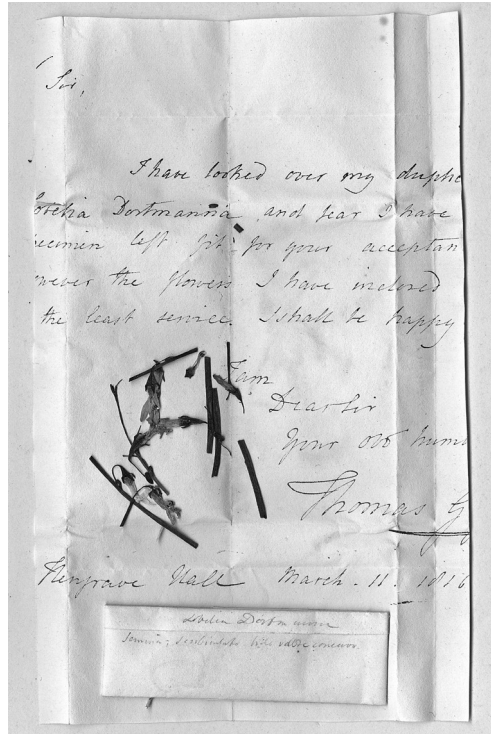 Sir,
I have looked over my dupli
obelia Dortmanna and fear I have
pecimen left fit for your acceptan
wever the flowers I have inclosed
the least service. I shall be happy
I am
Dear Sir
Your Obt hum
Thomas G
Hengrave Hall March. 11. 1816
Lobelia Dortmanna
Semina;